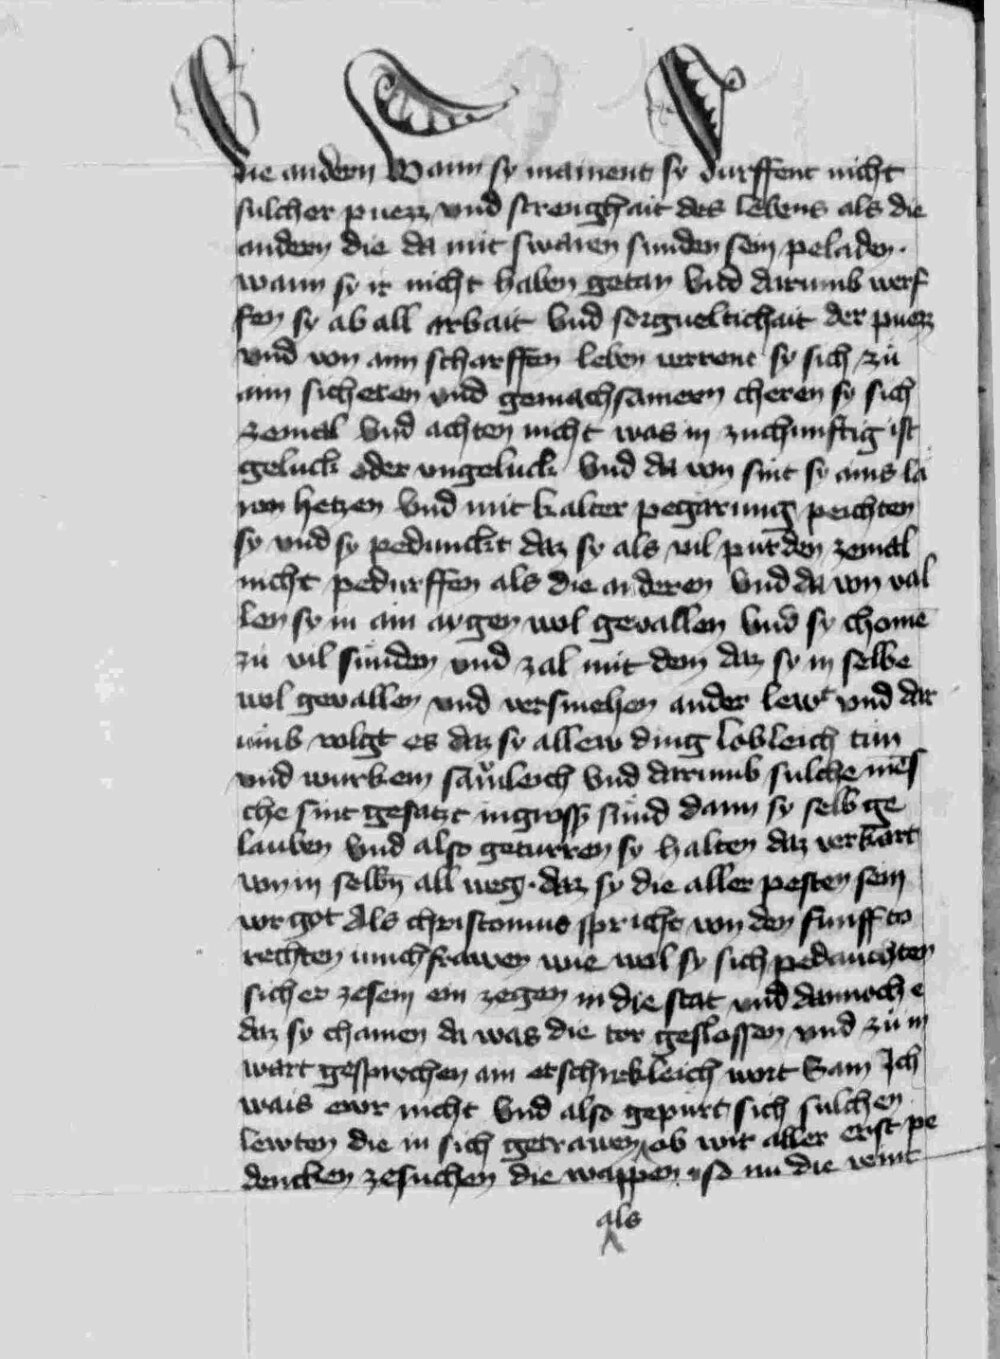 die andern Wann sy mainent sy durffent nicht
sulcher puezz vnd strenghait des lebens als die
anderen die da mit swaren sunden sein peladen.
wann sy ir nicht haben getan Vnd darumb werf
fen sy ab all arbait Vnd sorgueltichait der puezz
vnd von aim scharffen leben verrent sy sich zů
aim sicheren vnd gemachsamern cheren sy sich
zemal Vnd achten nicht was in zuchunftig ist
geluck oder vngeluck Vnd da von sint sy ains la
wen hetzen Vnd mit kalter pegarung peichten
sy vnd sy pedunckt daz sy als vil purden zemal
nicht pedurffen als die anderen Vnd da von val
len sy in ain aygen wol geuallen Vnd sy chomē
zů vil sunden vnd zal mit dem daz sy in selbe
wol geuallen vnd versmehen ander lewt vnd dar
umb volgt es daz sy allew ding lobleich tun
vnd wurkent sawmleich Vnd darumb sulche mēs
che sint gesatzt in gross sund dann sy selb ge
lauben Vnd also geturren sy halten daz verkart
von in selbn all weg. daz sy die aller pesten sein
vor got Als christomus spricht von den funff to
rechten iunchfrawen wie wol sy sich pedauchten
sicher zesein ein zegen in die stat vnd dannoch e
daz sy chamen da was die tor geslossen vnd zů in
wart gesprochen ain erschrekleich wort Sam Ich
wais ewr nicht Vnd also gepurt sich sulchen
lewten die in sich getrawen ob wir aller erst pe
dencken zesuchen die wappen so nu die veint
als